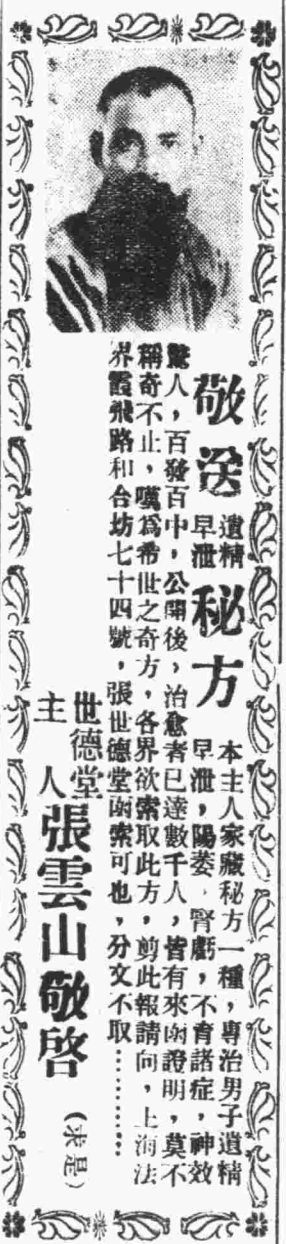 敬送遺精早泄秘方
本主人家藏秘方一種，專治男子遺精
早泄，陽萎，腎虧，不育諸症，神效
驚人，百發百中，公開後，治愈者已達數千人，皆有來函證明，莫不
稱奇不止，嘆爲希世之奇方，各界欲索取此方，剪此報請向，上海法
界霞飛路和合坊七十四號，張世德堂函索可也，分文不取…………
世德堂
主人
張雲山敬啓
（求是）